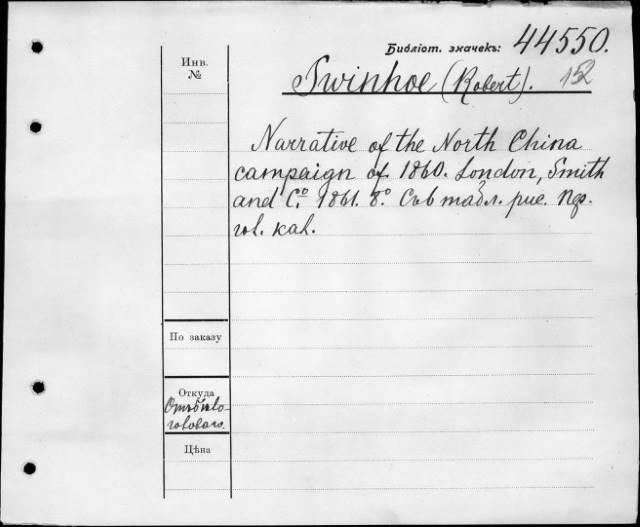 Библіот. значекъ: 44550.
Инв. №
Swinhoe (Robert). 152
Narrative of the North China
campaign of 1860. London, Smith
and Cº. 1861. 8º. Съ табл. рис.
кал.
По заказу
Откуда
Цѣна